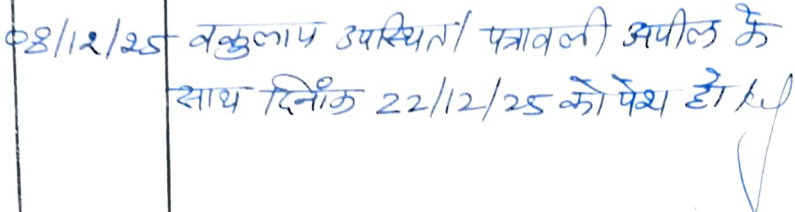 08/12/25 वकुलाय उपस्थित। पत्रावली अपील के
साथ दिनाँक 22/12/25 को पेश हो।